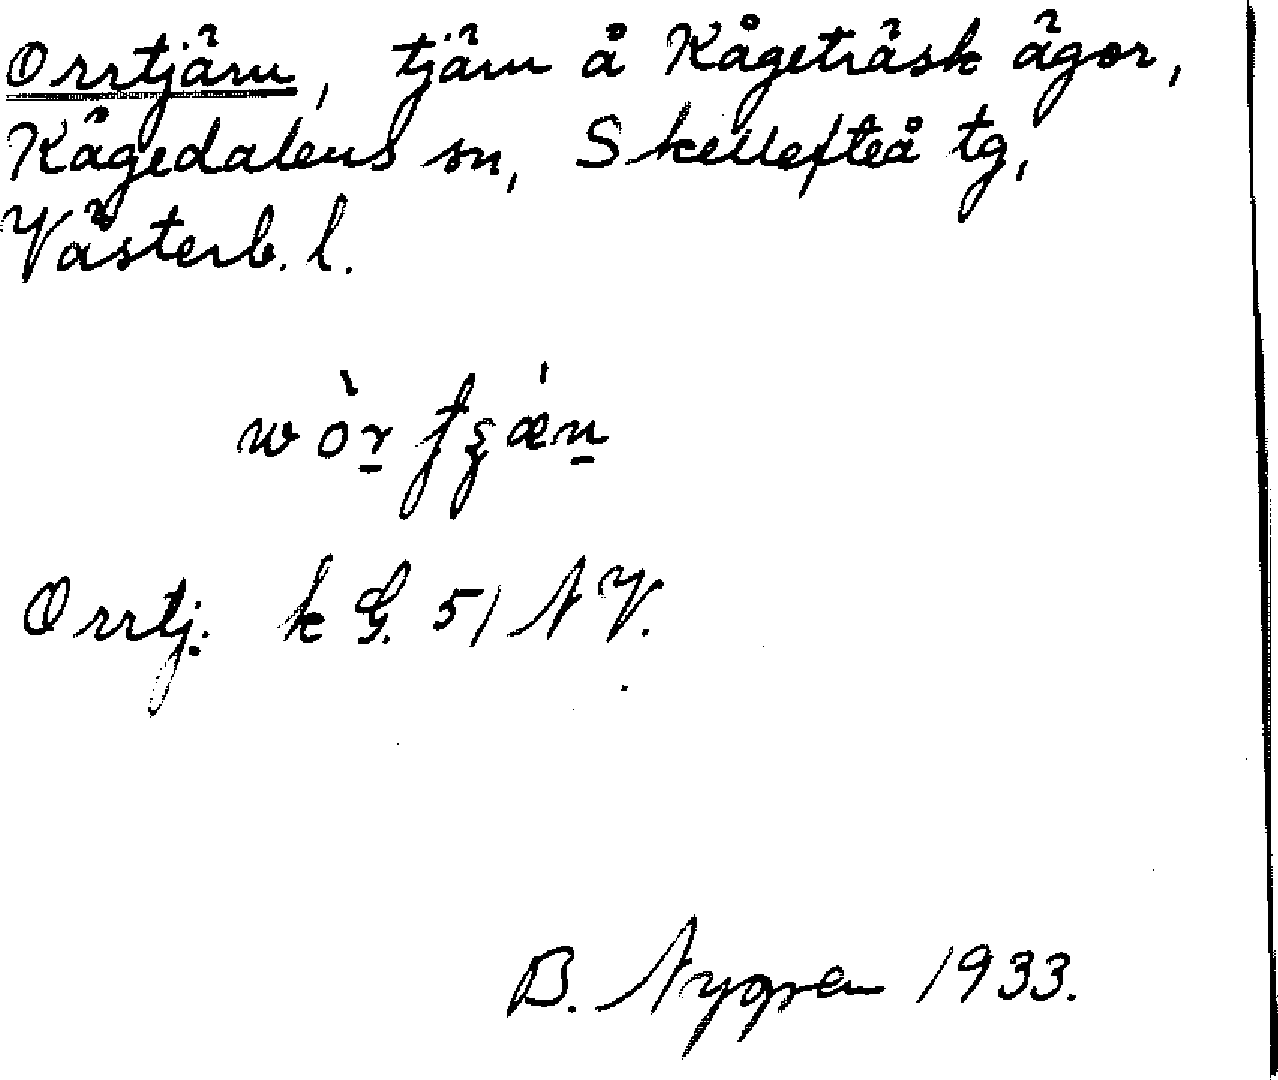 Orrtjärn, tjärn å Kågeträsk ägor,
Kågedalens sn, Skellefteå tg,
Västerb. l.
Orrtj. k G. 51 NV.
B. Nygren 1933.